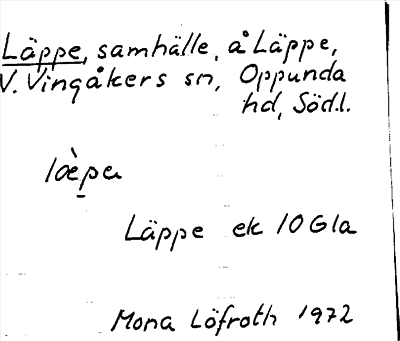 Läppe, samhälle, å Läppe,
V. Vingåkers sn, Oppunda
hd, Södl.
lœ̀pa
Läppe ek 10 G1a
Mona Löfroth 1972